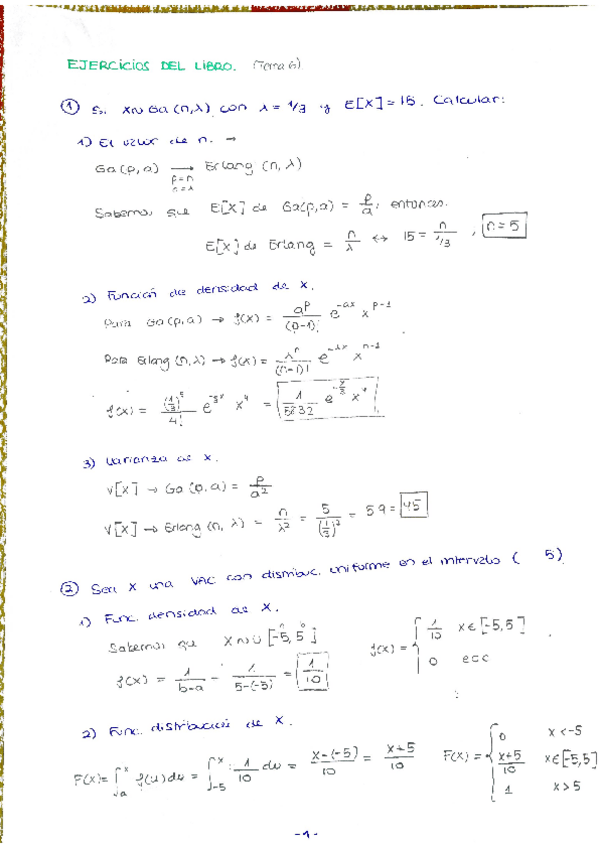 EJERCICIOS DEL LIBRO. (Tema 6)
① Si X∼Ga(n,λ) con λ = 1/3 y E[X] = 15. Calcular:
1) El valor de n. →
Ga(p,a) → Erlang (n, λ)
p=n
a=λ
Sabemos que E[X] de Ga(p,a) = p/a; entonces.
E[X] de Erlang = n/λ ↔ 15 = n/1/3 , n = 5
2) Función de densidad de X.
Para Ga(p,a) → f(x) = a^p/(p-1)! e^-ax x^p-1
Para Erlang (n,λ) → f(x) = λ^n/(n-1)! e^-λx x^n-1
f(x) = (1/3)^5/4! x^4 =
3) Varianza de X.
V[X] → Ga (p,a) = p/a²
V[X] → Erlang (n, λ) = n/λ² = 5/(1/3)² = 5·9 = 45
② Sea X una VAC con distribuc. uniforme en el intervalo ( 5)
1) Func. densidad de X.
Sabemos que X∼U [-5, 5]
f(x) = { 1/10 x∈[-5,5]
0 ecc
f(x) = 1/b-a = 1/5-(-5) = 1/10
2) Func. distribución de X.
F(x) = ∫_a^x f(u)du = ∫_-5^x 1/10 du = x-(-5)/10 = x+5/10
F(x) = { 0 x<-5
x+5/10 x∈[-5,5]
1 x>5
-1-